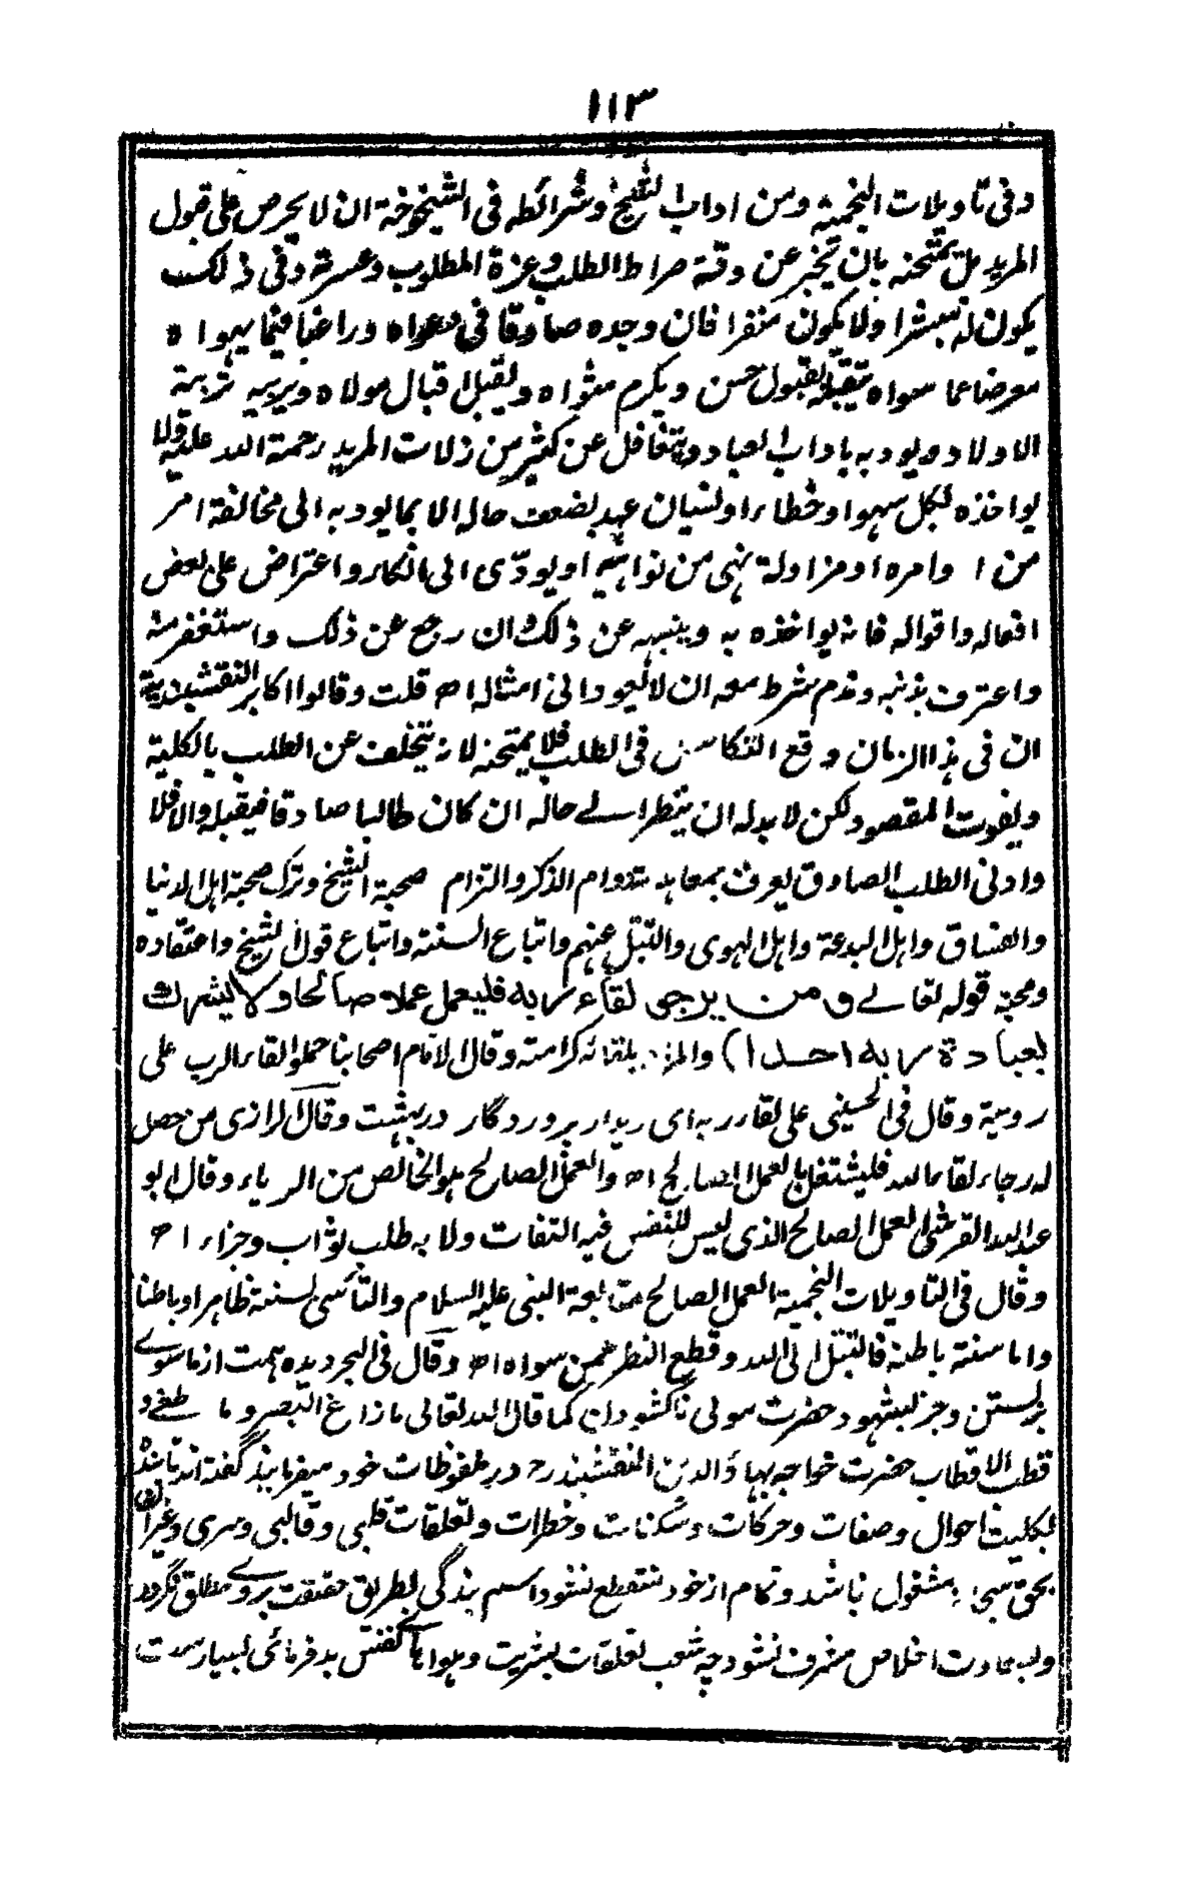 ١١٣
وفى تاويلات النجمية ومن اداب الشيخ وشرائطه فى الشيخوخة ان لا يحرص على قبول
المريد بل يمتحنه بان يخبر عن دقة صراط الطلب وعزة المطلوب وعسرته وفى ذلك
يكون له مبشرا ولا يكون منفرا فان وجده صادقا فى دعواه وراغبا فيما يهواه
معرضا عما سواه يتقبله بقبول حسن ويكرم مثواه ويقبل اقبال مولاه ويربيه تربية
الاولاد ويودبه باداب العباد ويتغافل عن كثير من زلات المريد رحمة الله عليه ولا
يواخذه بكل سهو او خطاء او نسيان عهد لضعف حاله الا بما يودبه الى مخالفة امر
من اوامره او مزاولة نهى من نواهيه او يودّى الى انكار واعتراض على بعض
افعاله واقواله فانه يواخذه به وينبهه عن ذلك ان رجع عن ذلك واستغفر منه
واعترف بذنبه وندم شرط معه ان لا يعود الى امثاله اه قلت وقالوا اكابر النقشبندية
ان فى هذا الزمان وقع التكاسل فى الطلب فلا يمتحنه لانه يتخلف عن الطلب بالكلية
ويفوت المقصود لكن لا بد له ان ينظر الى حاله ان كان طالبا صادقا فيقبله والا فلا
وادنى الطلب الصادق يعرف بمعاهدة دوام الذكر والتزام صحبة الشيخ وترك صحبة اهل الدنيا
والفساق واهل البدعة واهل الهوى والتبتل عنهم واتباع السنة واتباع قول الشيخ واعتقاده
ومحبة قوله تعالى ف من يرجى لقاء ربه فليعمل عملا صالحا ولا يشرك
بعبادة ربه احدا) والمراد بلقائه كرامته وقال الامام اصحابنا حملوا لقاء الرب على
روية وقال فى الحسينى على لقاء ربه اى ديدار پروردگار در بهشت وقال الرازى من حصل
له رجاء لقاء الله فليشتغل بالعمل الصالح اه والعمل الصالح هو الخالص من الرياء وقال ابو
عبد الله القرشى العمل الصالح الذى ليس للنفس فيه التفات ولا به طلب ثواب وجزاء اه
وقال فى التاويلات النجمية العمل الصالح متابعة النبى عليه السلام والتأسى بسنة ظاهرا وباطنا
واما سنة باطنه فالتبتل الى الله وقطع النظر عمن سواه اه وقال فى البحر ديده همت از ما سوے
بر بستن وجز بشهود حضرت مولى نا كشودن كما قال الله تعالى ما زاغ البصر وما طغى و
قطب الاقطاب حضرت خواجه بهاؤ الدين النقشبند رح در ملفوظات خود ميفرمايند گفته اند تا بنده
بكليت احوال وصفات وحركات وسكنات وخطرات وتعلقات قلبى وقالبى وسرى وغيران
بحق سبحانه مشغول نباشد وتمام از خود منقطع نشود اسم بندگى بطريق حقيقت بروے مطلق نگردد
وبسعادت اخلاص مشرف نشود چه شعب تعلقات بشريت وهواهاے نفس بد فرمائى بسيارست